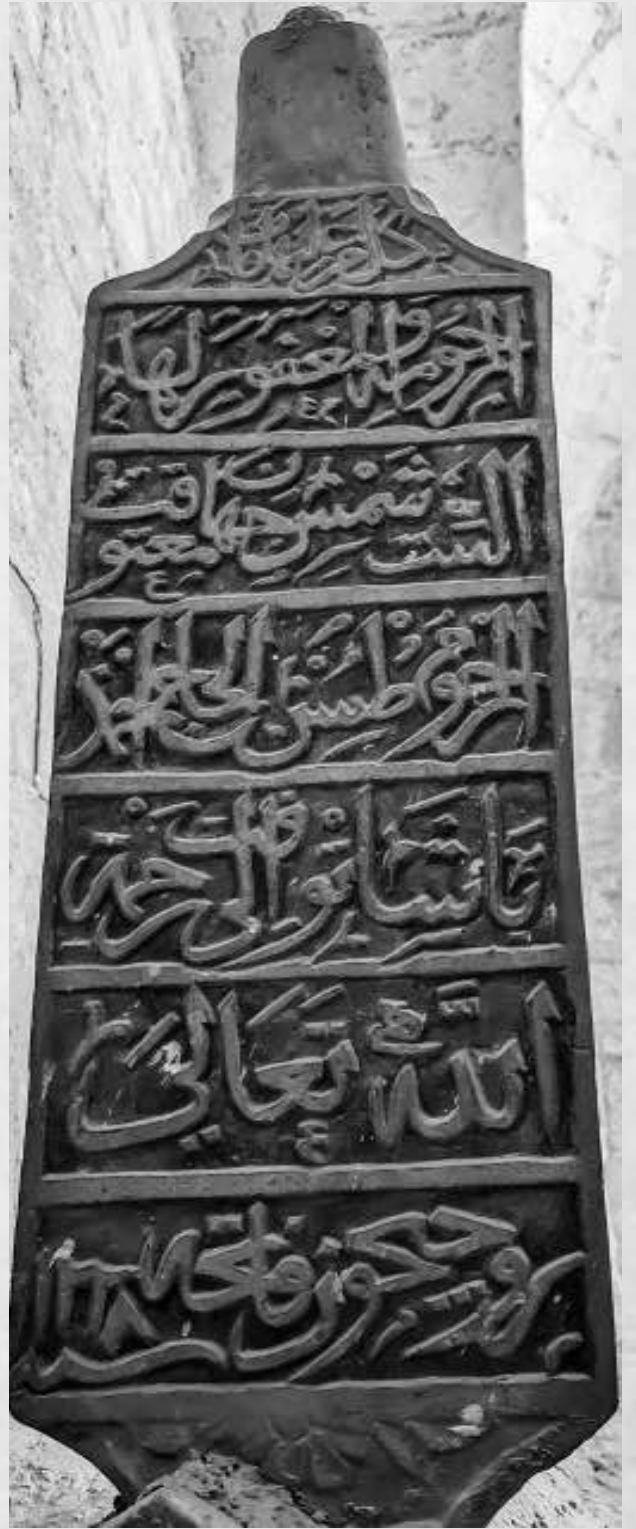 كل من عليها فان
المرحومة المغفور لها
الست شمس جهان معتوقت
المرحوم طسن الحاج
باشا توفت الى رحمة
الله تعالى
روحيچون فاتحه سنة ١٢٣٨